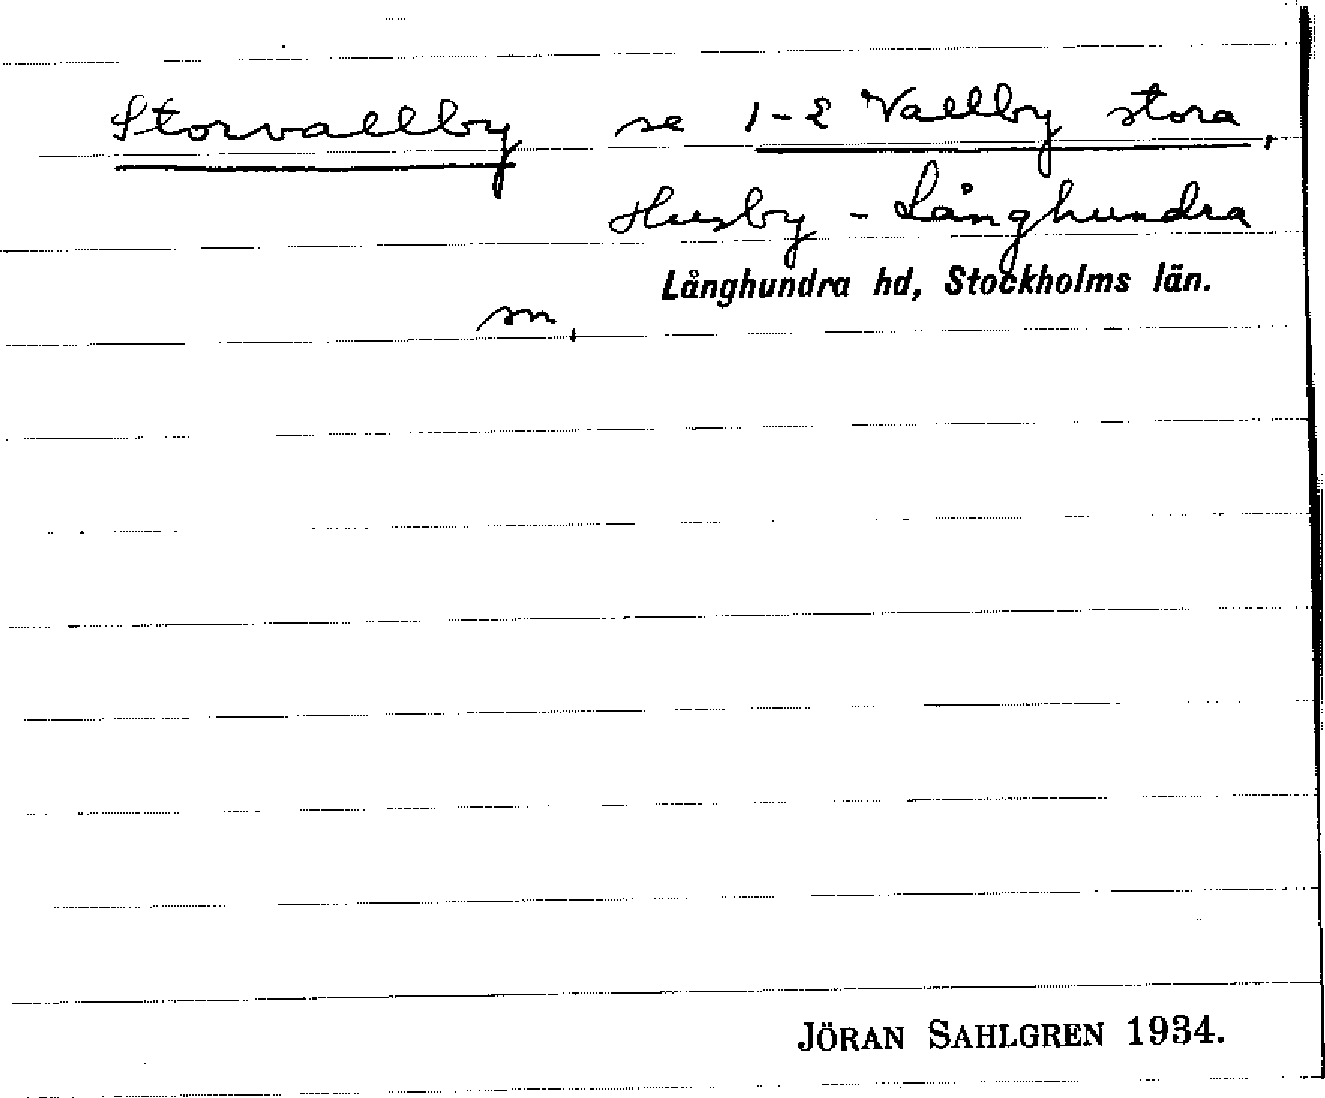 Storvallby se 1-2 Vallby stora,
Husby - Långhundra
Långhundra hd, Stockholms län.
sn.
JÖRAN SAHLGREN 1934.